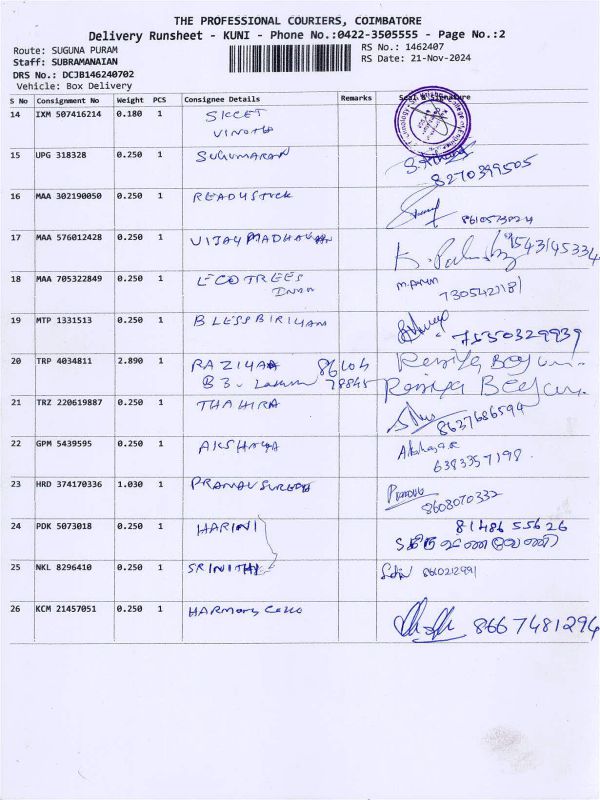 THE PROFESSIONAL COURIERS, COIMBATORE
Delivery Runsheet - KUNI - Phone No.:0422-3505555 - Page No.:2
Route: SUGUNA PURAM
RS No.: 1462407
Staff: SUBRAMANAIAN
RS Date: 21-Nov-2024
DRS No.: DCJB146240702
Vehicle: Box Delivery
S No Consignment No Weight PCS Consignee Details Remarks Seal & Signature
14 IXM 507416214 0.180 1 SKCET
VINOTH
15 UPG 318328 0.250 1 SUGUMARAN
8270399505
16 MAA 302190050 0.250 1 READYSTOCK
17 MAA 576012428 0.250 1 VIJAY MADHAVAN
9543145334
18 MAA 705322849 0.250 1 LECO TREES
7305421181
19 MTP 1331513 0.250 1 BLESS BIRIYANI 7550329939
20 TRP 4034811 2.890 1 RAZIYA Raziya Begum.
Raziya Begum.
21 TRZ 220619887 0.250 1 THAHIRA
8637686594
22 GPM 5439595 0.250 1 AKSHAYA
6383357198
23 HRD 374170336 1.030 1 PRANAV SURESH Pranav
8608070332
24 PDK 5073018 0.250 1 HARINI 8148655626
25 NKL 8296410 0.250 1 SRINITHI
26 KCM 21457051 0.250 1 HARMONY 8667481294